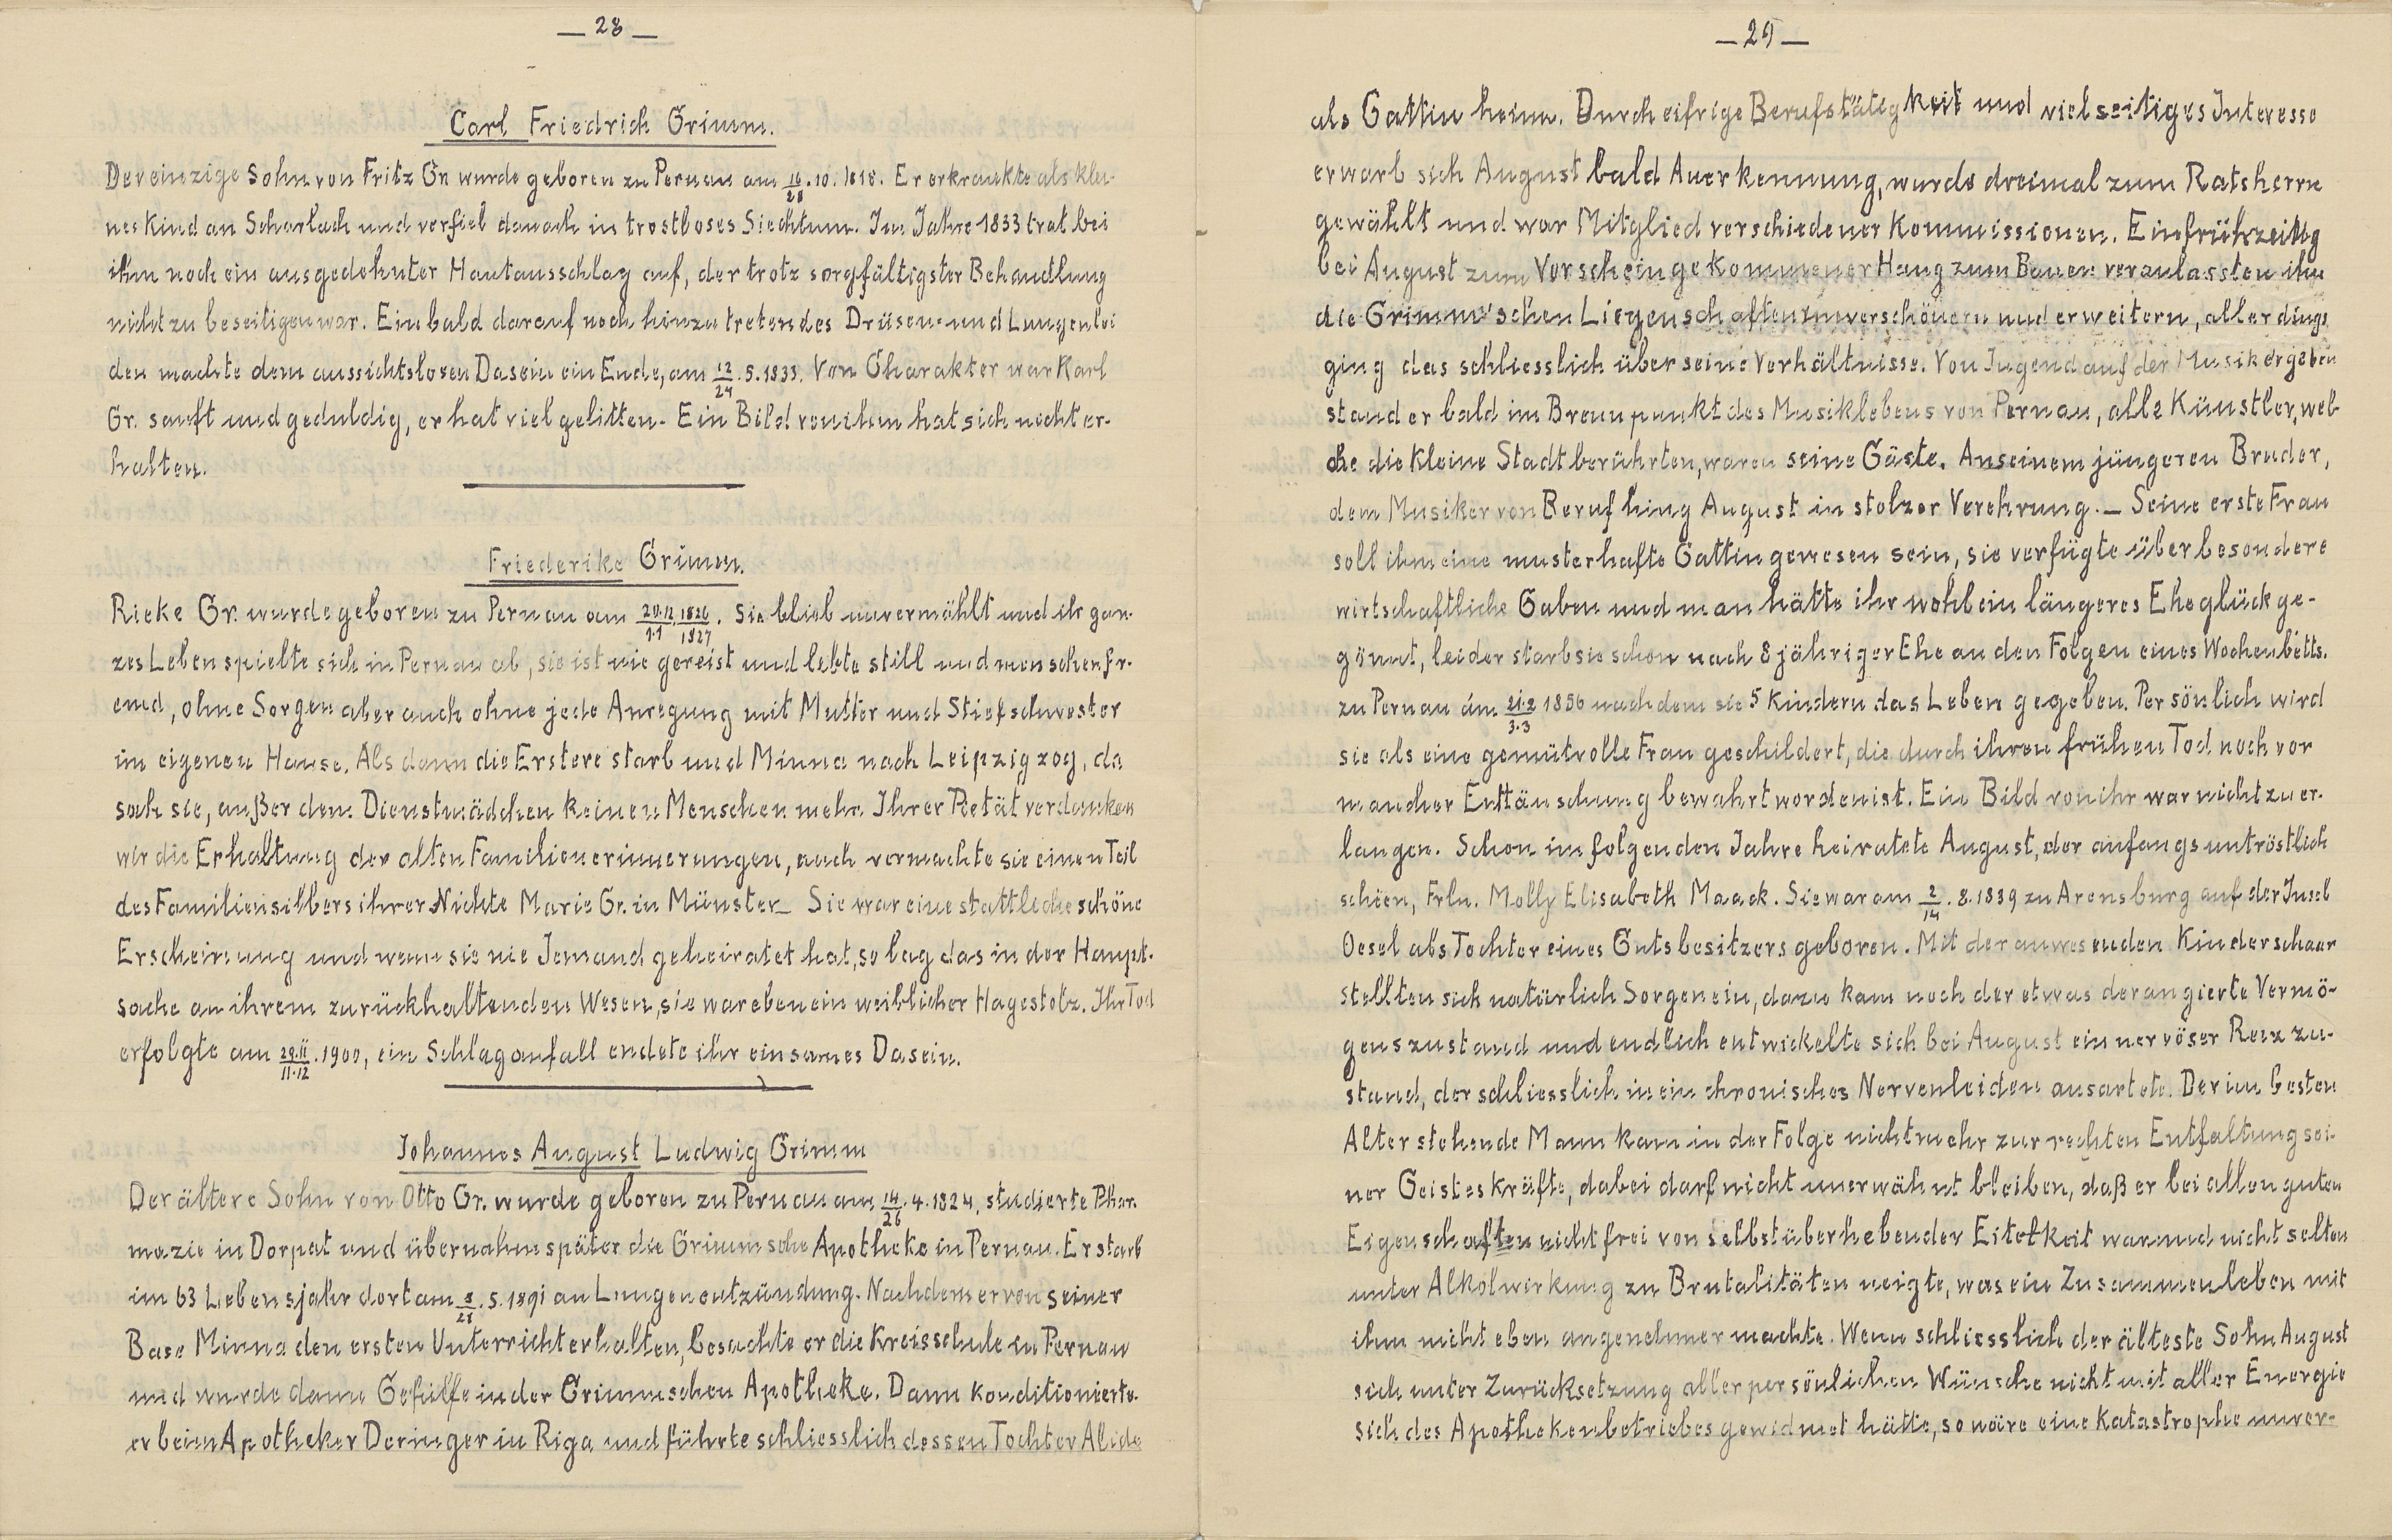 — 28 —
Carl Friedrich Grimm.
Der einzige Sohn von Fritz Gr. wurde geboren zu Pernau am 16/28.10.1818. Er erkrankte als klei-
nes Kind an Scharlach und verfiel danach in trostloses Siechtum. Im Jahre 1833 trat bei
ihm noch ein ausgedehnter Hautausschlag auf, der trotz sorgfältigster Behandlung
nicht zu beseitigen war. Ein bald darauf noch hinzu tretendes Drüsen- und Lungenlei
den machte dem aussichtslosen Dasein ein Ende, am 12/24.5.1833. Von Charakter war Karl
Gr. sanft und geduldig, er hat viel gelitten. Ein Bild von ihm hat sich nicht er-
halten.
Friederike Grimm.
Rieke Gr. wurde geboren zu Pernau am 20.12/1.1 1826/1827. Sie blieb unvermählt und ihr gan-
zes Leben spielte sich in Pernau ab, sie ist nie gereist und lebte still und menschenfr-
emd, ohne Sorgen aber auch ohne jede Anregung mit Mutter und Stiefschwester
im eigenen Hause. Als dann die Erstere starb und Minna nach Leipzig zog, da
sah sie, außer dem Dienstmädchen keinen Menschen mehr. Ihrer Pietät verdanken
wir die Erhaltung der alten Familienerinnerungen, auch vermachte sie einen Teil
des Familiensilbers ihrer Nichte Marie Gr. in Münster_ Sie war eine stattliche schöne
Erscheinung und wenn sie nie Jemand geheiratet hat, so lag das in der Haupt-
sache an ihrem zurückhaltenden Wesen, sie war eben ein weiblicher Hagestolz. Ihr Tod
erfolgte am 29.11/11.12.1900, ein Schlaganfall endete ihr einsames Dasein.
Johannes August Ludwig Grimm
Der ältere Sohn von Otto Gr. wurde geboren zu Pernau am 14/26.4.1824, studierte Phar-
mazie in Dorpat und übernahm später die Grimmsche Apotheke in Pernau. Er starb
im 63 Lebensjahr dort am .5.1891 an Lungenentzündung. Nachdem er von seiner
Base Minna den ersten Unterricht erhalten, besuchte er die Kreisschule in Pernau
und wurde dann Gehilfe in der Grimmschen Apotheke. Dann konditionierte
er beim Apotheker Deringer in Riga und führte schliesslich dessen Tochter Alide
— 29 —
als Gattin heim. Durch eifrige Berufstätigkeit und vielseitiges Interesse
erwarb sich August bald Anerkennung, wurde dreimal zum Ratsherrn
gewählt und war Mitglied verschiedener Kommissionen. Ein frühzeitig
bei August zum Vorschein gekommener Hang zum Bauen veranlassten ihn
die Grimm'schen Liegenschaften zu verschönern und erweitern, allerdings
ging das schliesslich über seine Verhältnisse. Von Jugend auf der Musik ergeben
stand er bald im Brennpunkt des Musiklebens von Pernau, alle Künstler, wel-
che die kleine Stadt berührten, waren seine Gäste. An seinem jüngeren Bruder,
dem Musiker von Beruf hing August in stolzer Verehrung._ Seine erste Frau
soll ihm eine musterhafte Gattin gewesen sein, sie verfügte über besondere
wirtschaftliche Gaben und man hätte ihr wohl ein längeres Eheglück ge-
gönnt, leider starb sie schon nach 8 jähriger Ehe an den Folgen eines Wochenbetts.
zu Pernau am 21.2/3.3 1856 nachdem sie 5 Kindern das Leben gegeben. Persönlich wird
sie als eine gemütvolle Frau geschildert, die durch ihren frühen Tod noch vor
mancher Enttäuschung bewahrt worden ist. Ein Bild von ihr war nicht zu er-
langen. Schon im folgenden Jahre heiratete August, der anfangs untröstlich
schien, Frln. Molly Elisabeth Maack. Sie war am 2/14.8.1839 zu Arensburg auf der Insel
Oesel als Tochter eines Gutsbesitzers geboren. Mit der anwesenden Kinderschaar
stellten sich natürlich Sorgen ein, dazu kam noch der etwas derangierte Vermö-
genszustand und endlich entwickelte sich bei August ein nervöser Reizzu-
stand, der schliesslich in ein chronisches Nervenleiden ausartete. Der im besten
Alter stehende Mann kam in der Folge nicht mehr zur rechten Entfaltung sei-
ner Geisteskräfte, dabei darf nicht unerwähnt bleiben, daß er bei allen guten
Eigenschaften nicht frei von selbstüberhebender Eitelkeit war und nicht selten
unter Alkolwirkung zu Brutalitäten neigte, was ein Zusammenleben mit
ihm nicht eben angenehmer machte. Wenn schliesslich der älteste Sohn August
sich unter Zurücksetzung aller persönlichen Wünsche nicht mit aller Energie
sich des Apothekenbetriebes gewidmet hätte, so wäre eine Katastrophe unver-